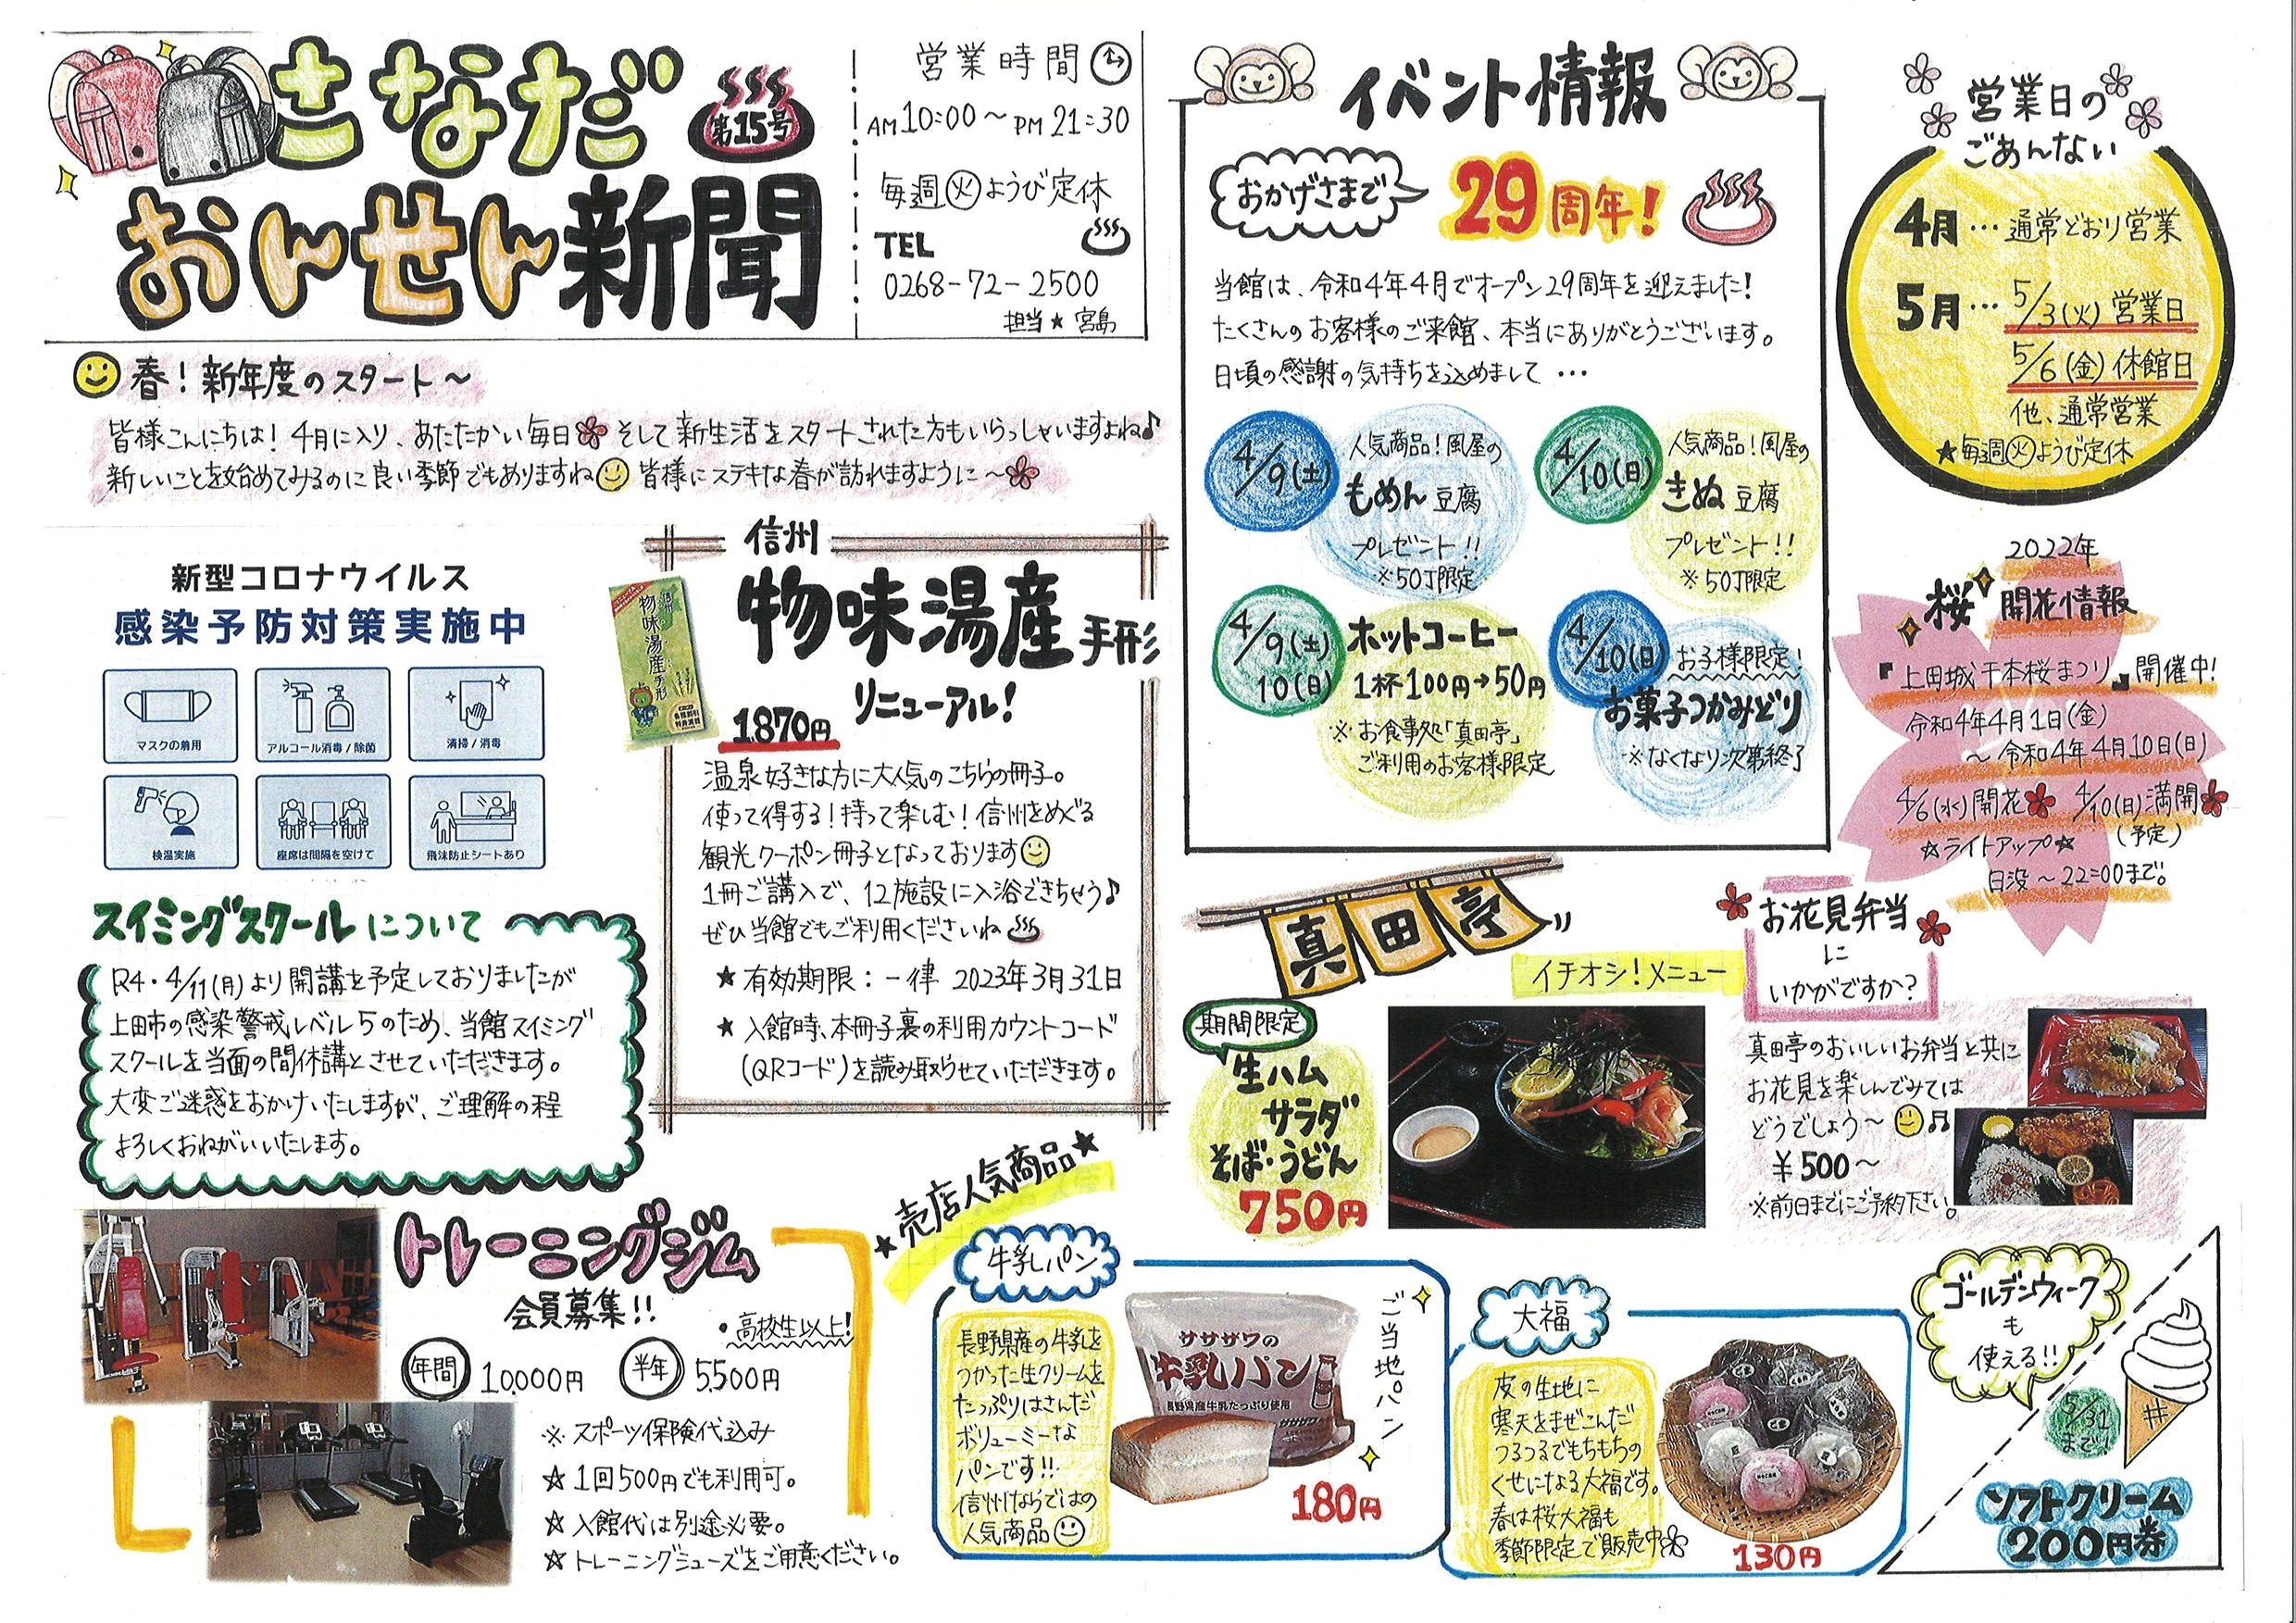 さなだ
おんせん新聞
第15号
営業時間
AM10:00～PM21:30
毎週㊋ようび定休
TEL
0268-72-2500
担当★宮島
春！新年度のスタート～
皆様こんにちは！4月に入り、あたたかい毎日 そして新生活をスタートされた方もいらっしゃいますよね♪
新しいことを始めてみるのに良い季節でもありますね 皆様にステキな春が訪れますように～
新型コロナウイルス
感染予防対策実施中
マスクの着用
アルコール消毒/除菌
清掃/消毒
検温実施
座席は間隔を空けて
飛沫防止シートあり
スイミングスクールについて
R4・4/11(月)より開講を予定しておりましたが
上田市の感染警戒レベル5のため、当館スイミング
スクールを当面の間休講とさせていただきます。
大変ご迷惑をおかけいたしますが、ご理解の程
よろしくおねがいいたします。
信州
物味湯産手形
リニューアル！
信州
物味湯産手形
1870円
温泉好きな方に大人気のこちらの冊子。
使って得する！持って楽しむ！信州をめぐる
観光クーポン冊子となっております
1冊ご購入で、12施設に入浴できちゃう♪
ぜひ当館でもご利用くださいね
★有効期限：一律 2023年3月31日
★入館時、本冊子裏の利用カウントコード
(QRコード)を読み取らせていただきます。
トレーニングジム
会員募集!!
・高校生以上！
年間 10,000円 半年 5,500円
※スポーツ保険代込み
☆1回500円でも利用可。
☆入館代は別途必要。
☆トレーニングシューズをご用意ください。
イベント情報
おかげさまで
29周年！
当館は、令和4年4月でオープン29周年を迎えました！
たくさんのお客様のご来館、本当にありがとうございます。
日頃の感謝の気持ちを込めまして…
4/9(土)
人気商品！風屋の
もめん豆腐
プレゼント!!
※50丁限定
4/10(日)
人気商品！風屋の
きぬ豆腐
プレゼント!!
※50丁限定
4/9(土)
10(日)
ホットコーヒー
1杯100円→50円
※お食事処「真田亭」
ご利用のお客様限定
4/10(日)
お子様限定！
お菓子つかみどり
※なくなり次第終了
営業日の
ごあんない
4月…通常どおり営業
5月…5/3(火)営業日
5/6(金)休館日
他、通常営業
★毎週㊋ようび定休
2022年
桜開花情報
『上田城千本桜まつり』開催中！
令和4年4月1日(金)
～令和4年4月10日(日)
4/6(水)開花 4/10(日)満開
(予定)
☆ライトアップ☆
日没～22:00まで。
真田亭
イチオシ！メニュー
期間限定
生ハム
サラダ
そば・うどん
750円
お花見弁当
に
いかがですか？
真田亭のおいしいお弁当と共に
お花見を楽しんでみては
どうでしょう～♬
¥500～
※前日までにご予約下さい。
★売店人気商品★
牛乳パン
長野県産の牛乳を
つかった生クリームを
たっぷりはさんだ
ボリューミーな
パンです!!
信州ならではの
人気商品
ササザワの
牛乳パン
長野県産牛乳たっぷり使用
ご当地パン
180円
大福
皮の生地に
寒天をまぜこんだ
つるつるでもちもちの
くせになる大福です。
春は桜大福も
季節限定で販売中
130円
ゴールデンウィーク
も
使える!!
5/31
まで！
ソフトクリーム
200円券